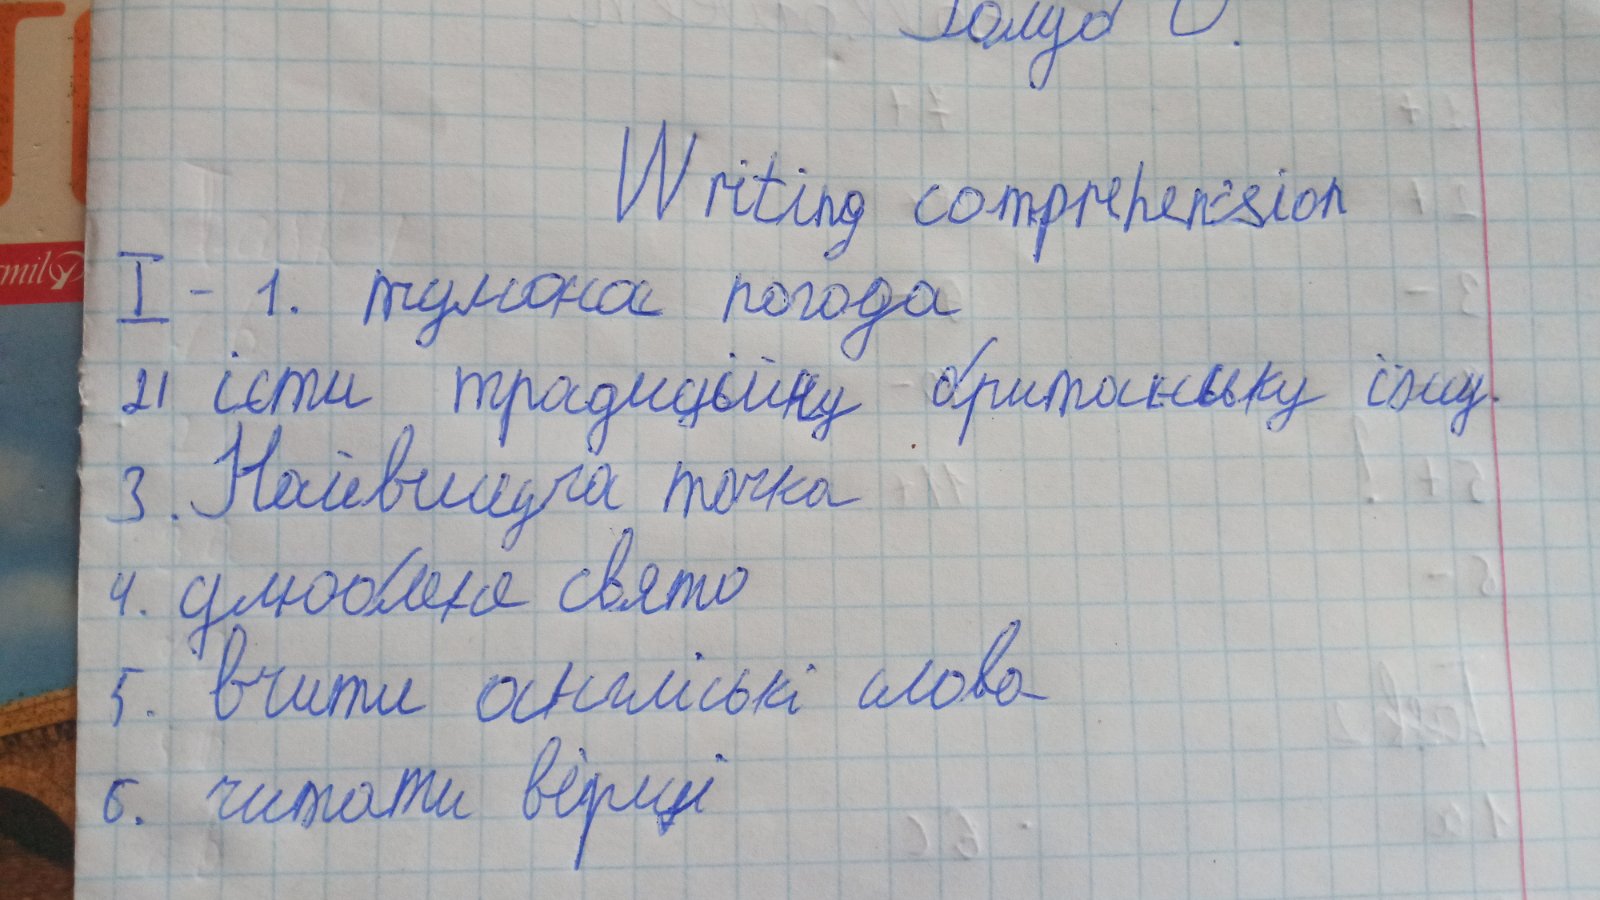 Голуб О.
Writing comprehension
I - 1. тумана погода
2. їсти традиційну британську їжу.
3. Найвища точка
4. улюблене свято
5. вчити англіські слова
6. читати вірші